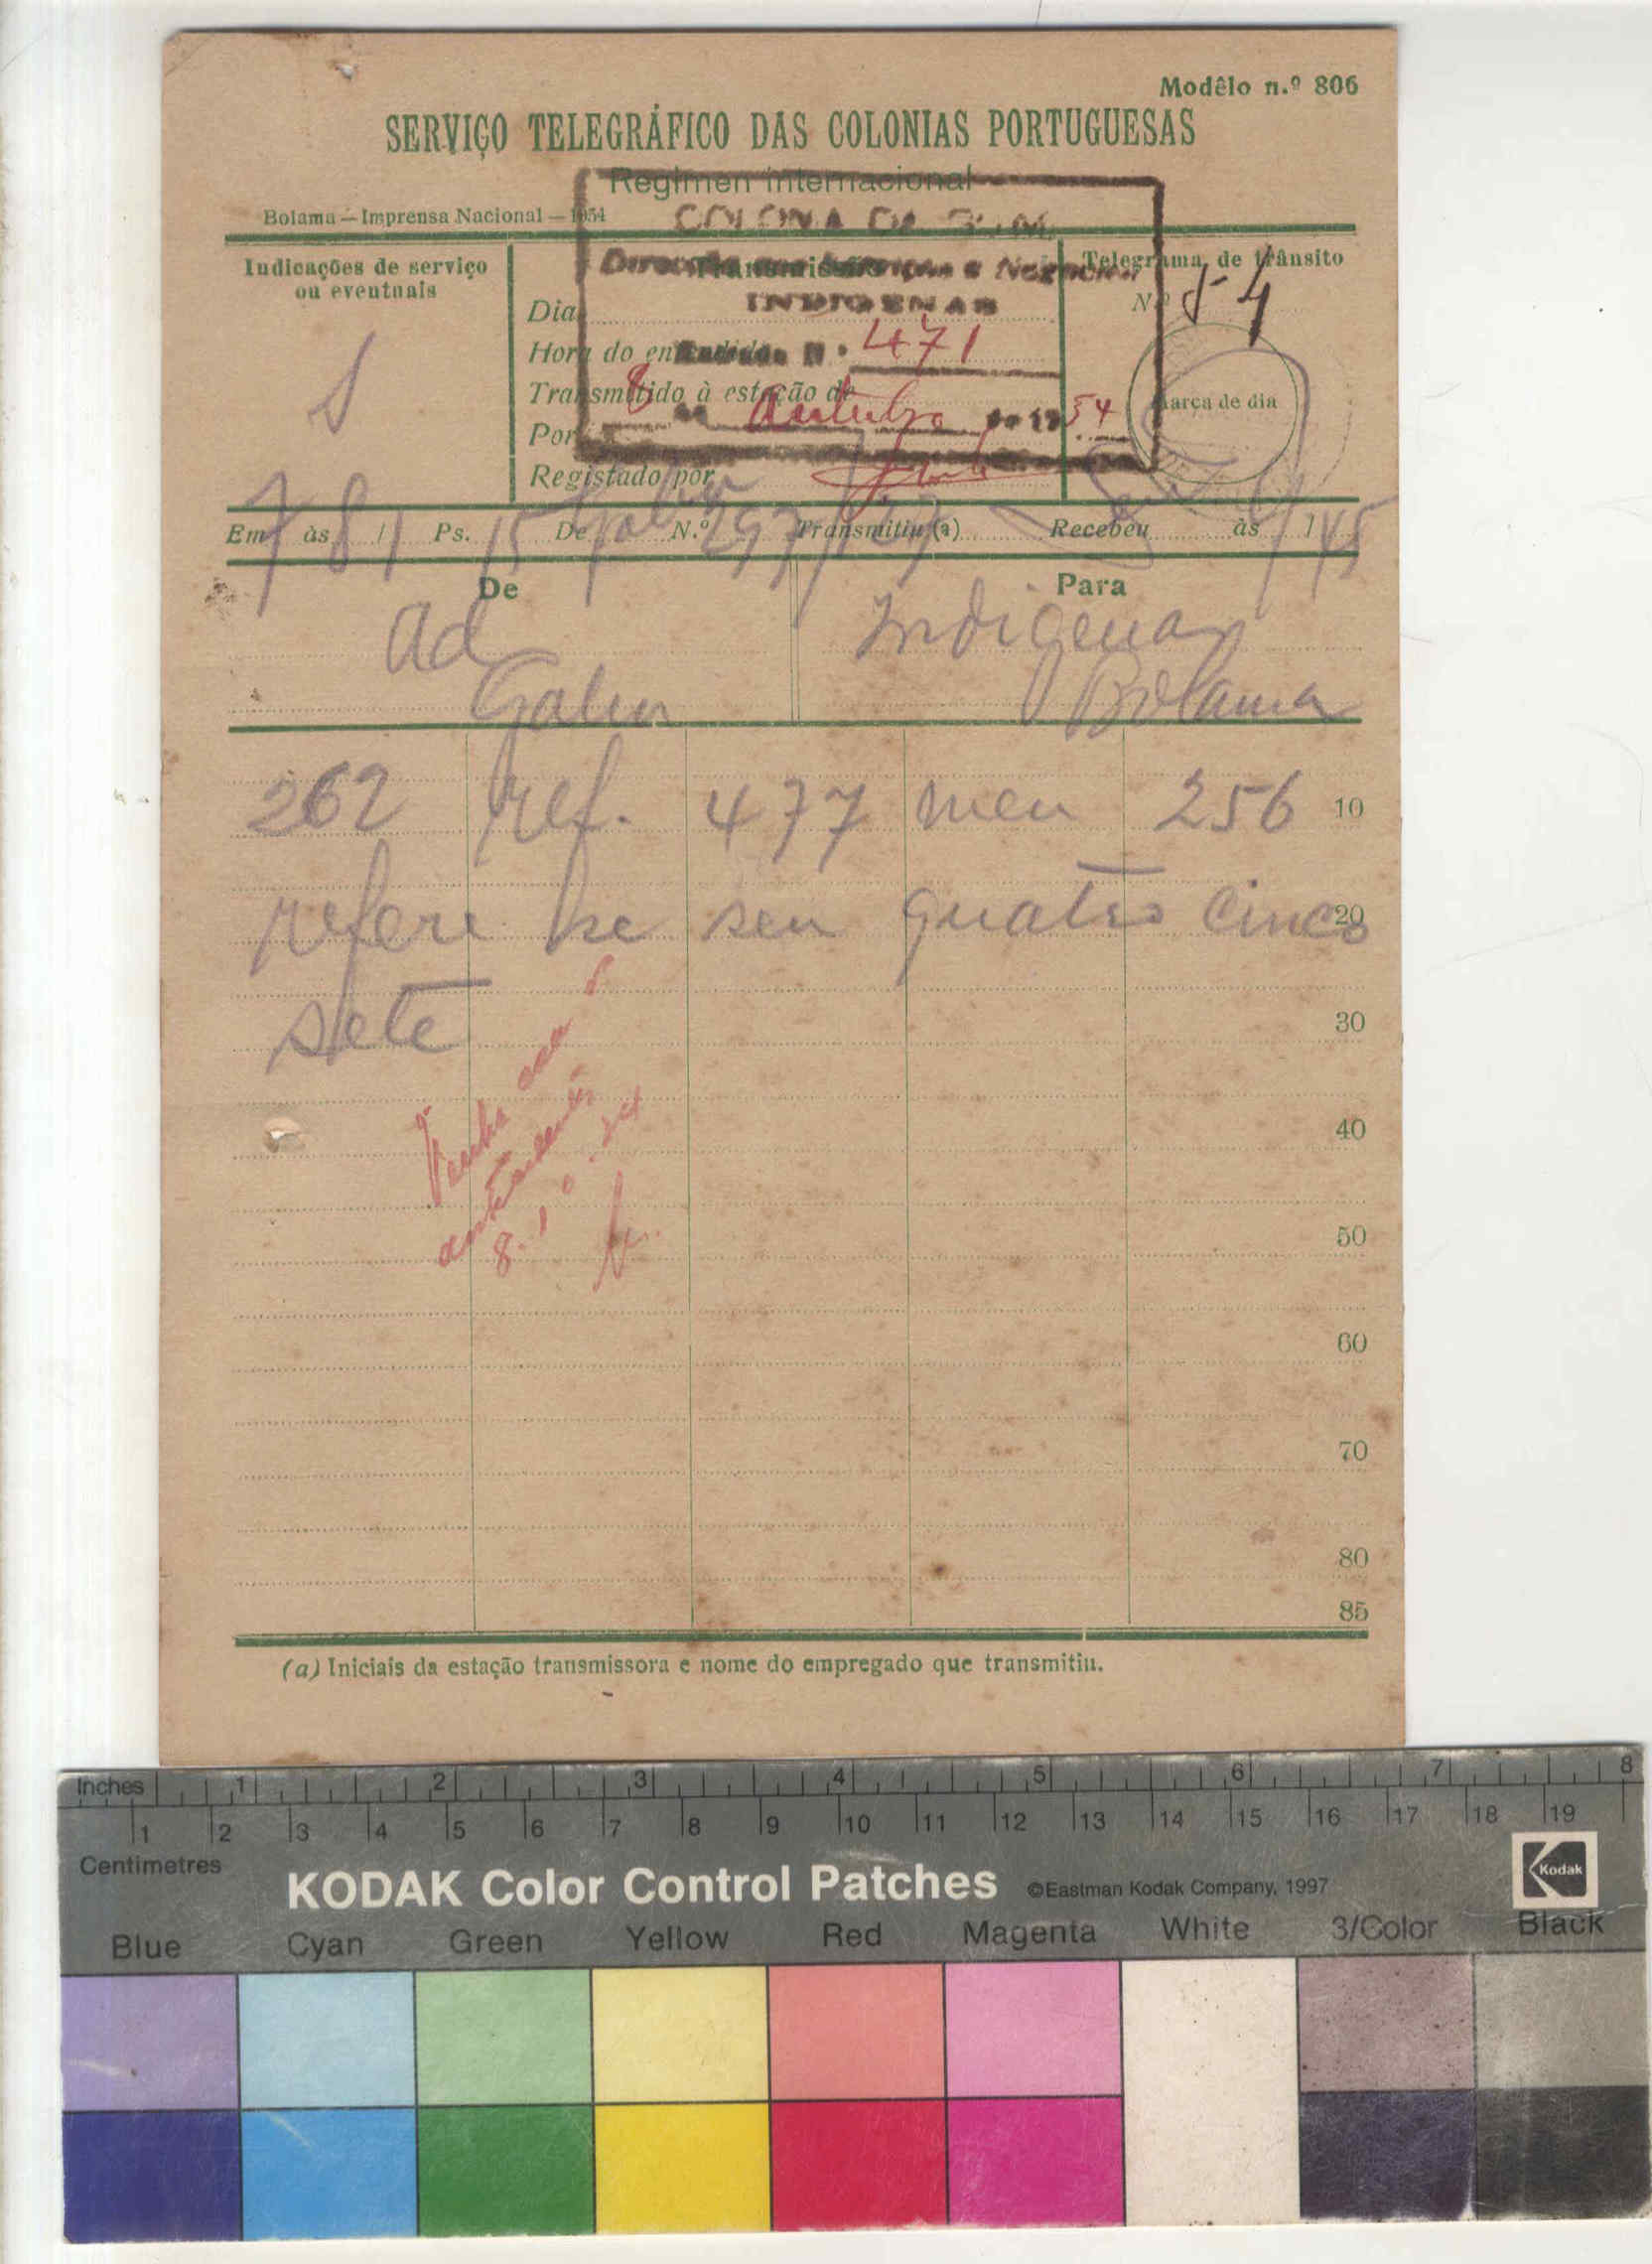 Modêlo n.º 806
SERVIÇO TELEGRÁFICO DAS COLONIAS PORTUGUESAS
Regimen internacional
Bolama — Imprensa Nacional —
COLONIA DA
Indicações de serviço
ou eventuais
Telegrama de trânsito
N.º
INDIGENAS
Dia
Hora do
471
Transmitido à estação de
8 de Outubro de 19 34
Marca de dia
Por
Registado por
Em às Ps. 15 De N.º 297 Transmitiu (a) Recebeu às 45
De Para
Ad Indigenas
Gabu Bolama
262 ref. 477 meu 256 10
refere se seu quatro cinco 20
sete
30
Venha com os
antecedentes
8.10.34
40
50
60
70
80
85
(a) Iniciais da estação transmissora e nome do empregado que transmitiu.
Inches 1 2 3 4 5 6 7 8
1 2 3 4 5 6 7 8 9 10 11 12 13 14 15 16 17 18 19
Centimetres
KODAK Color Control Patches ©Eastman Kodak Company, 1997 Kodak
Blue Cyan Green Yellow Red Magenta White 3/Color Black